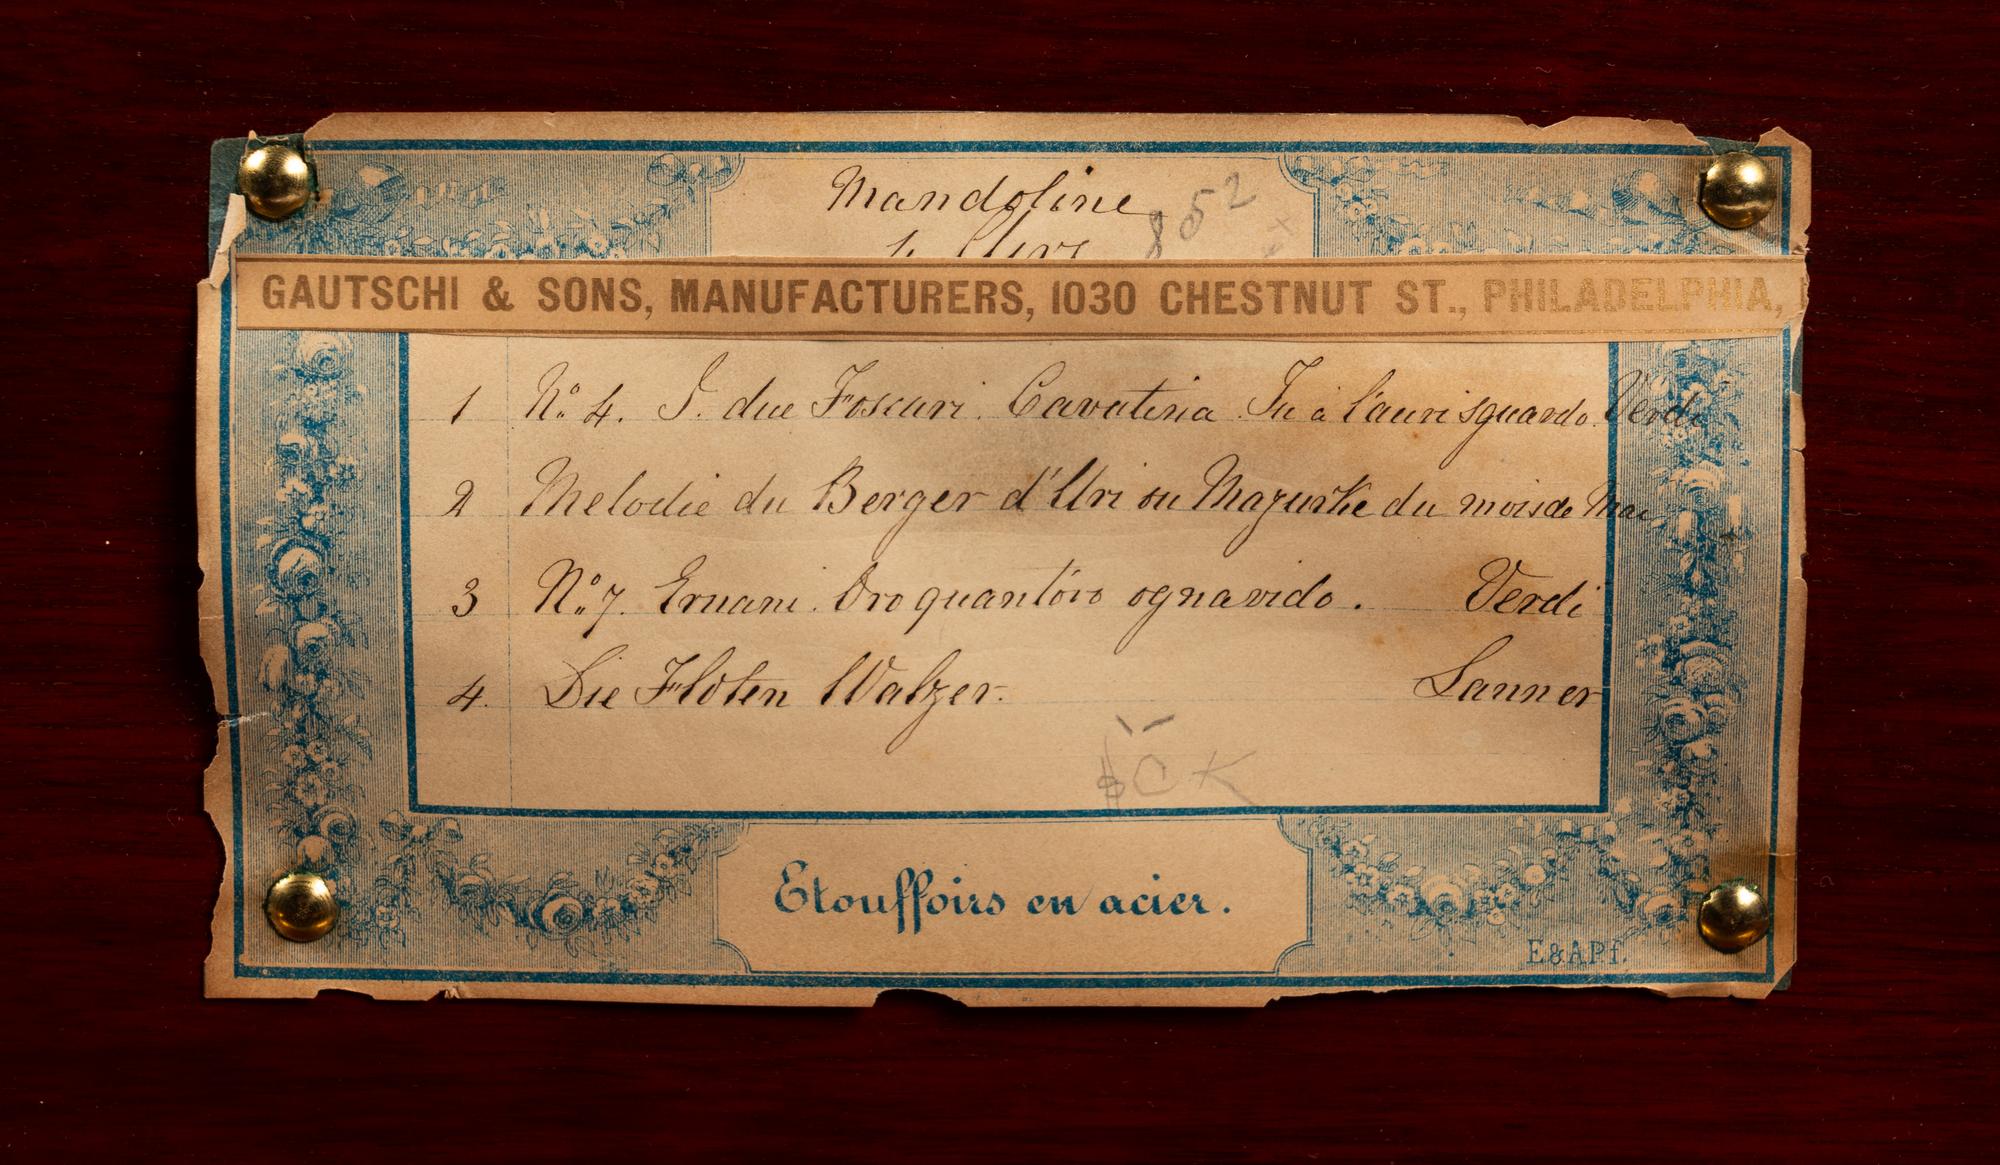 Mandoline
852
4 Airs
GAUTSCHI & SONS, MANUFACTURERS, 1030 CHESTNUT ST., PHILADELPHIA,
1 No. 4. I. due Foscari. Cavatina Tu a l'auri sguardo. Verdi
2 Melodie du Berger d'Uri ou Mazurke du mois de Mai
3 No. 7. Ernani. Oro quant'oro ognavido. Verdi
4. Die Floten Walzer. Lanner
Etouffoirs en acier.
E&APf.